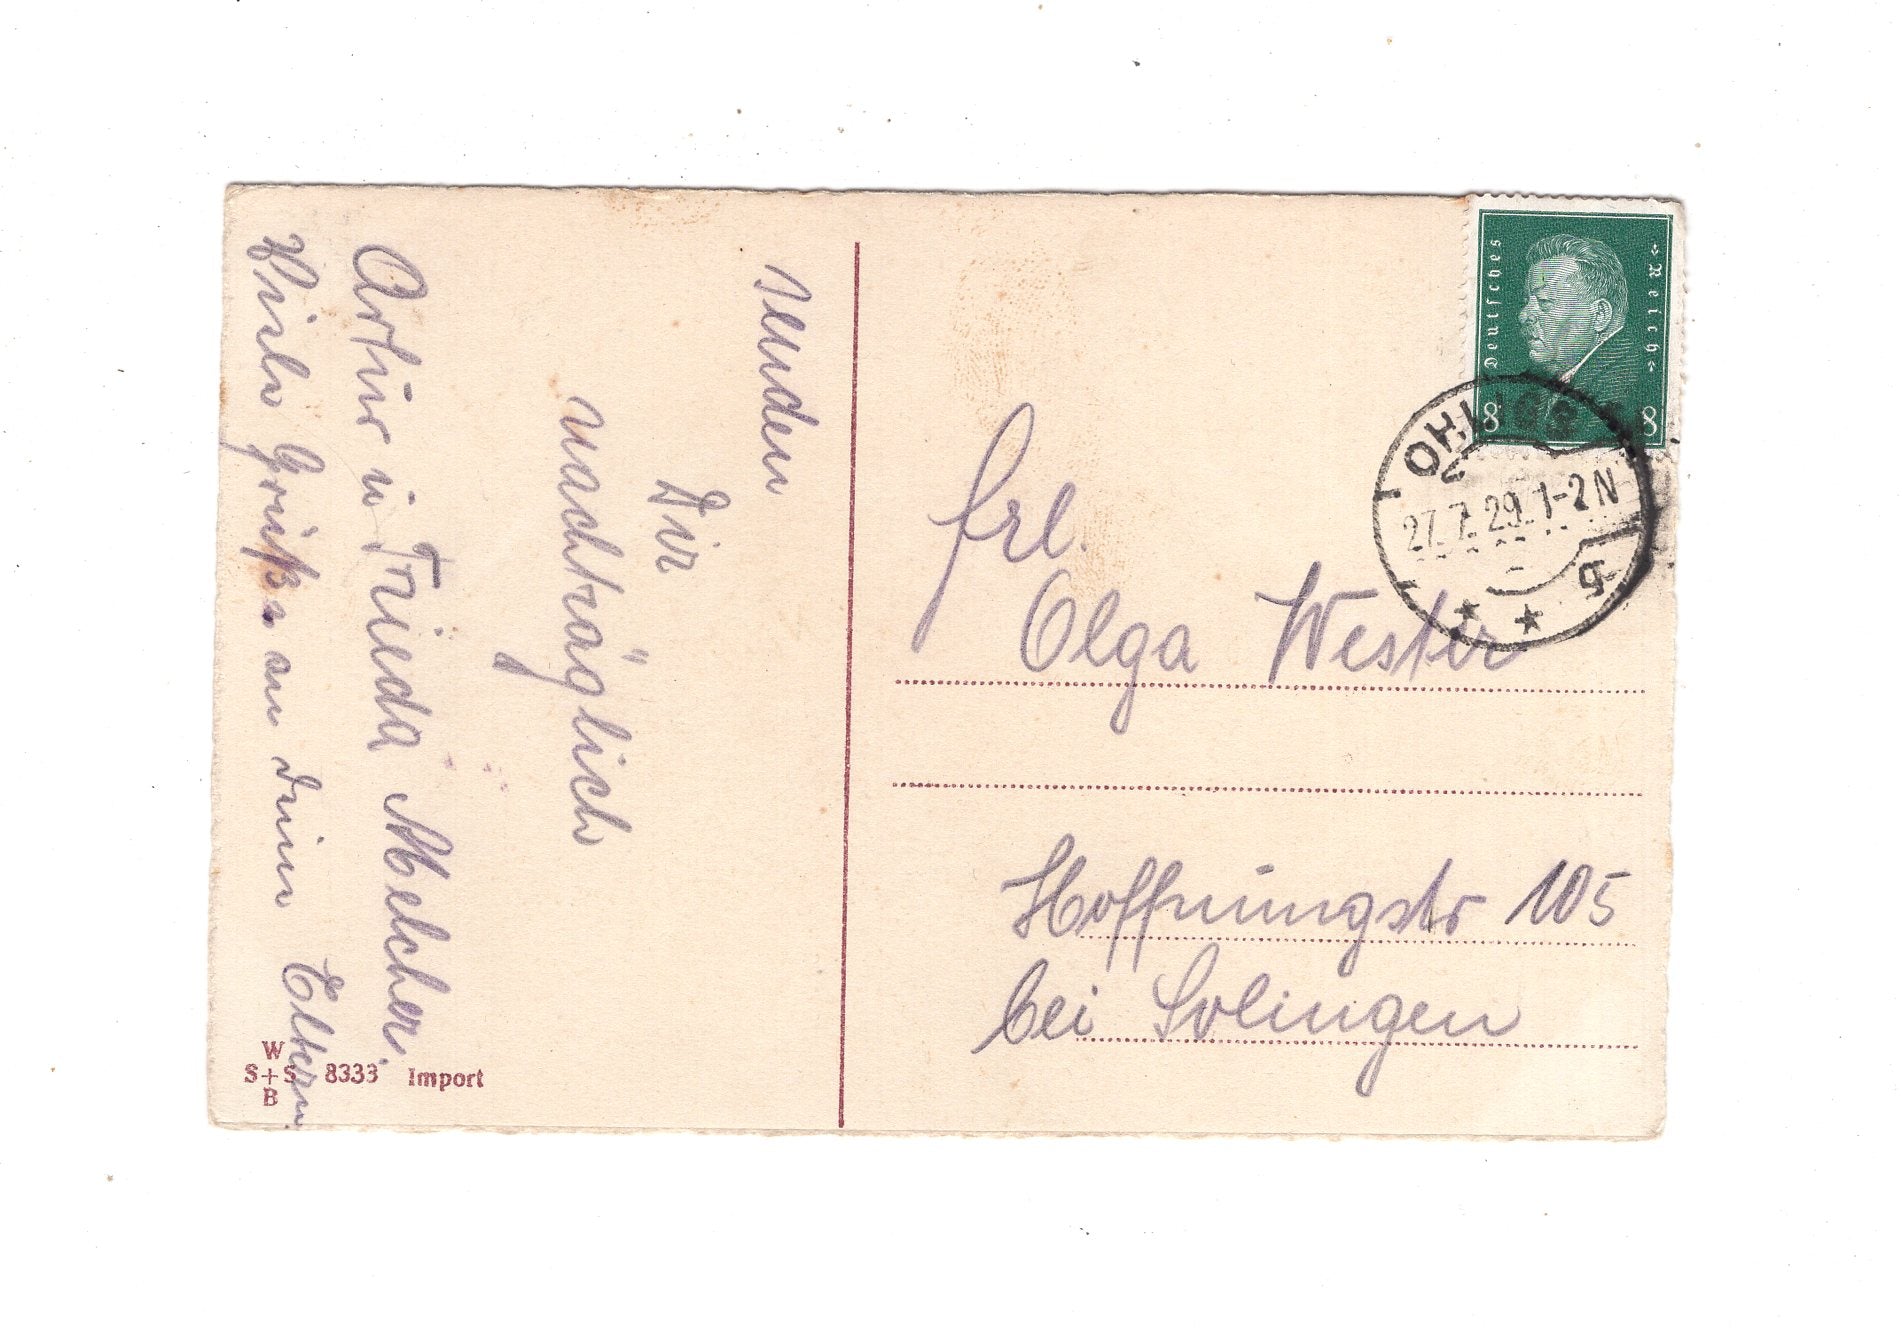 senden
Dir
nachträglich
Artur u Frieda Melcher.
Viele Grüße an deine Eltern
W
S+S 8333 Import
B
Deutsches
Reich
8 8
OHLIGS
27.7.29.1-2N
* * g
Frl.
Olga Wester
Hoffnungstr 105
bei Solingen